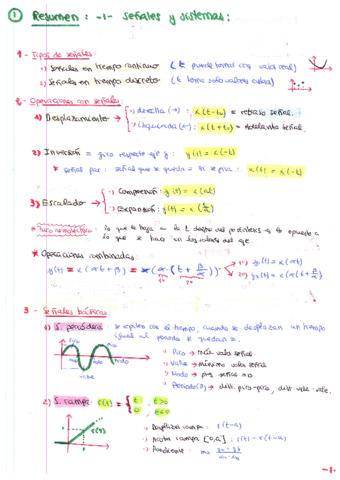 ① Resumen: -1- Señales y sistemas:
1 - Tipos de señales:
1) Señales en tiempo continuo (t puede tomar cual valor real)
2) Señales en tiempo discreto (t toma solo valores enteros)
2 - Operaciones con señales:
1) Desplazamiento → derecha (→): x(t-t₀) = retraso señal.
→ izquierda (←): x(t+t₀) = adelanto señal.
2) Inversión = giro respecto eje y: y(t) = x(-t)
* señal par: señal que se queda = si se gira: x(t) = x(-t)
3) Escalado → Compresión: y(t) = x(αt)
→ Expansión: y(t) = x(t/α)
lo que le haga a la t dentro del paréntesis es lo opuesto a
lo que se hace en los valores del eje.
* Operaciones combinadas:
y(t) = x(αt + β) = x(α·(t + β/α)) 1º) y₁(t) = x(αt)
2º) y₂(t) = x(α(t + β/α))
3 - Señales básicas:
1) S. periódica: se repite con el tiempo, cuando se desplazan un tiempo
igual al periodo se quedan =.
pico
nodo
valle
→ Pico → máx. valor señal.
→ Valle → mínimo valor señal
→ Nodo → pto. señal = 0
→ Periodo(T) → dist. pico-pico, dist. valle-valle.
2) S. rampa: r(t) = { t, t>0
0, t≤0
r(t)
→ Desplazar rampa: r(t-a)
→ rampa [0,a]: r(t) - r(t-a)
→ Pendiente: m=
-1-